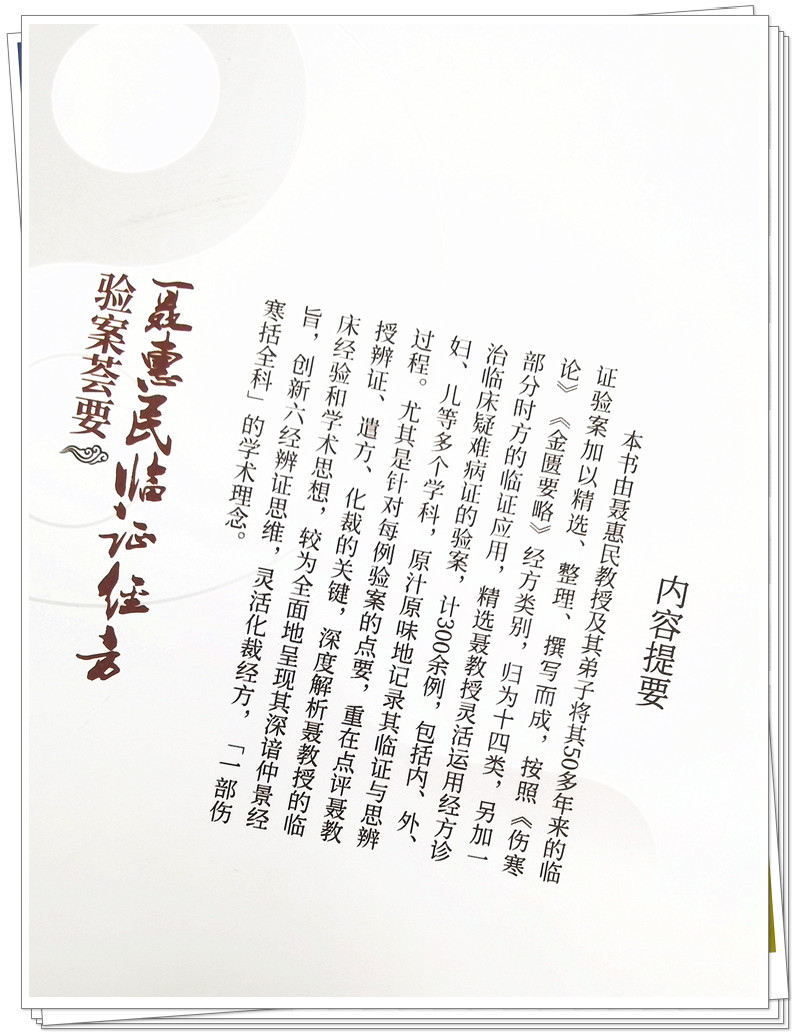 内容提要
本书由聂惠民教授及其弟子将其50多年来的临
证验案加以精选、整理、撰写而成，按照《伤寒
论》《金匮要略》经方类别，归为十四类，另加一
部分时方的临证应用，精选聂教授灵活运用经方诊
治临床疑难病证的验案，计300余例，包括内、外、
妇、儿等多个学科，原汁原味地记录其临证与思辨
过程。尤其是针对每例验案的点要，重在点评聂教
授辨证、遣方、化裁的关键，深度解析聂教授的临
床经验和学术思想，较为全面地呈现其深谙仲景经
旨，创新六经辨证思维，灵活化裁经方，「一部伤
寒括全科」的学术理念。
聂惠民临证经方
验案荟要